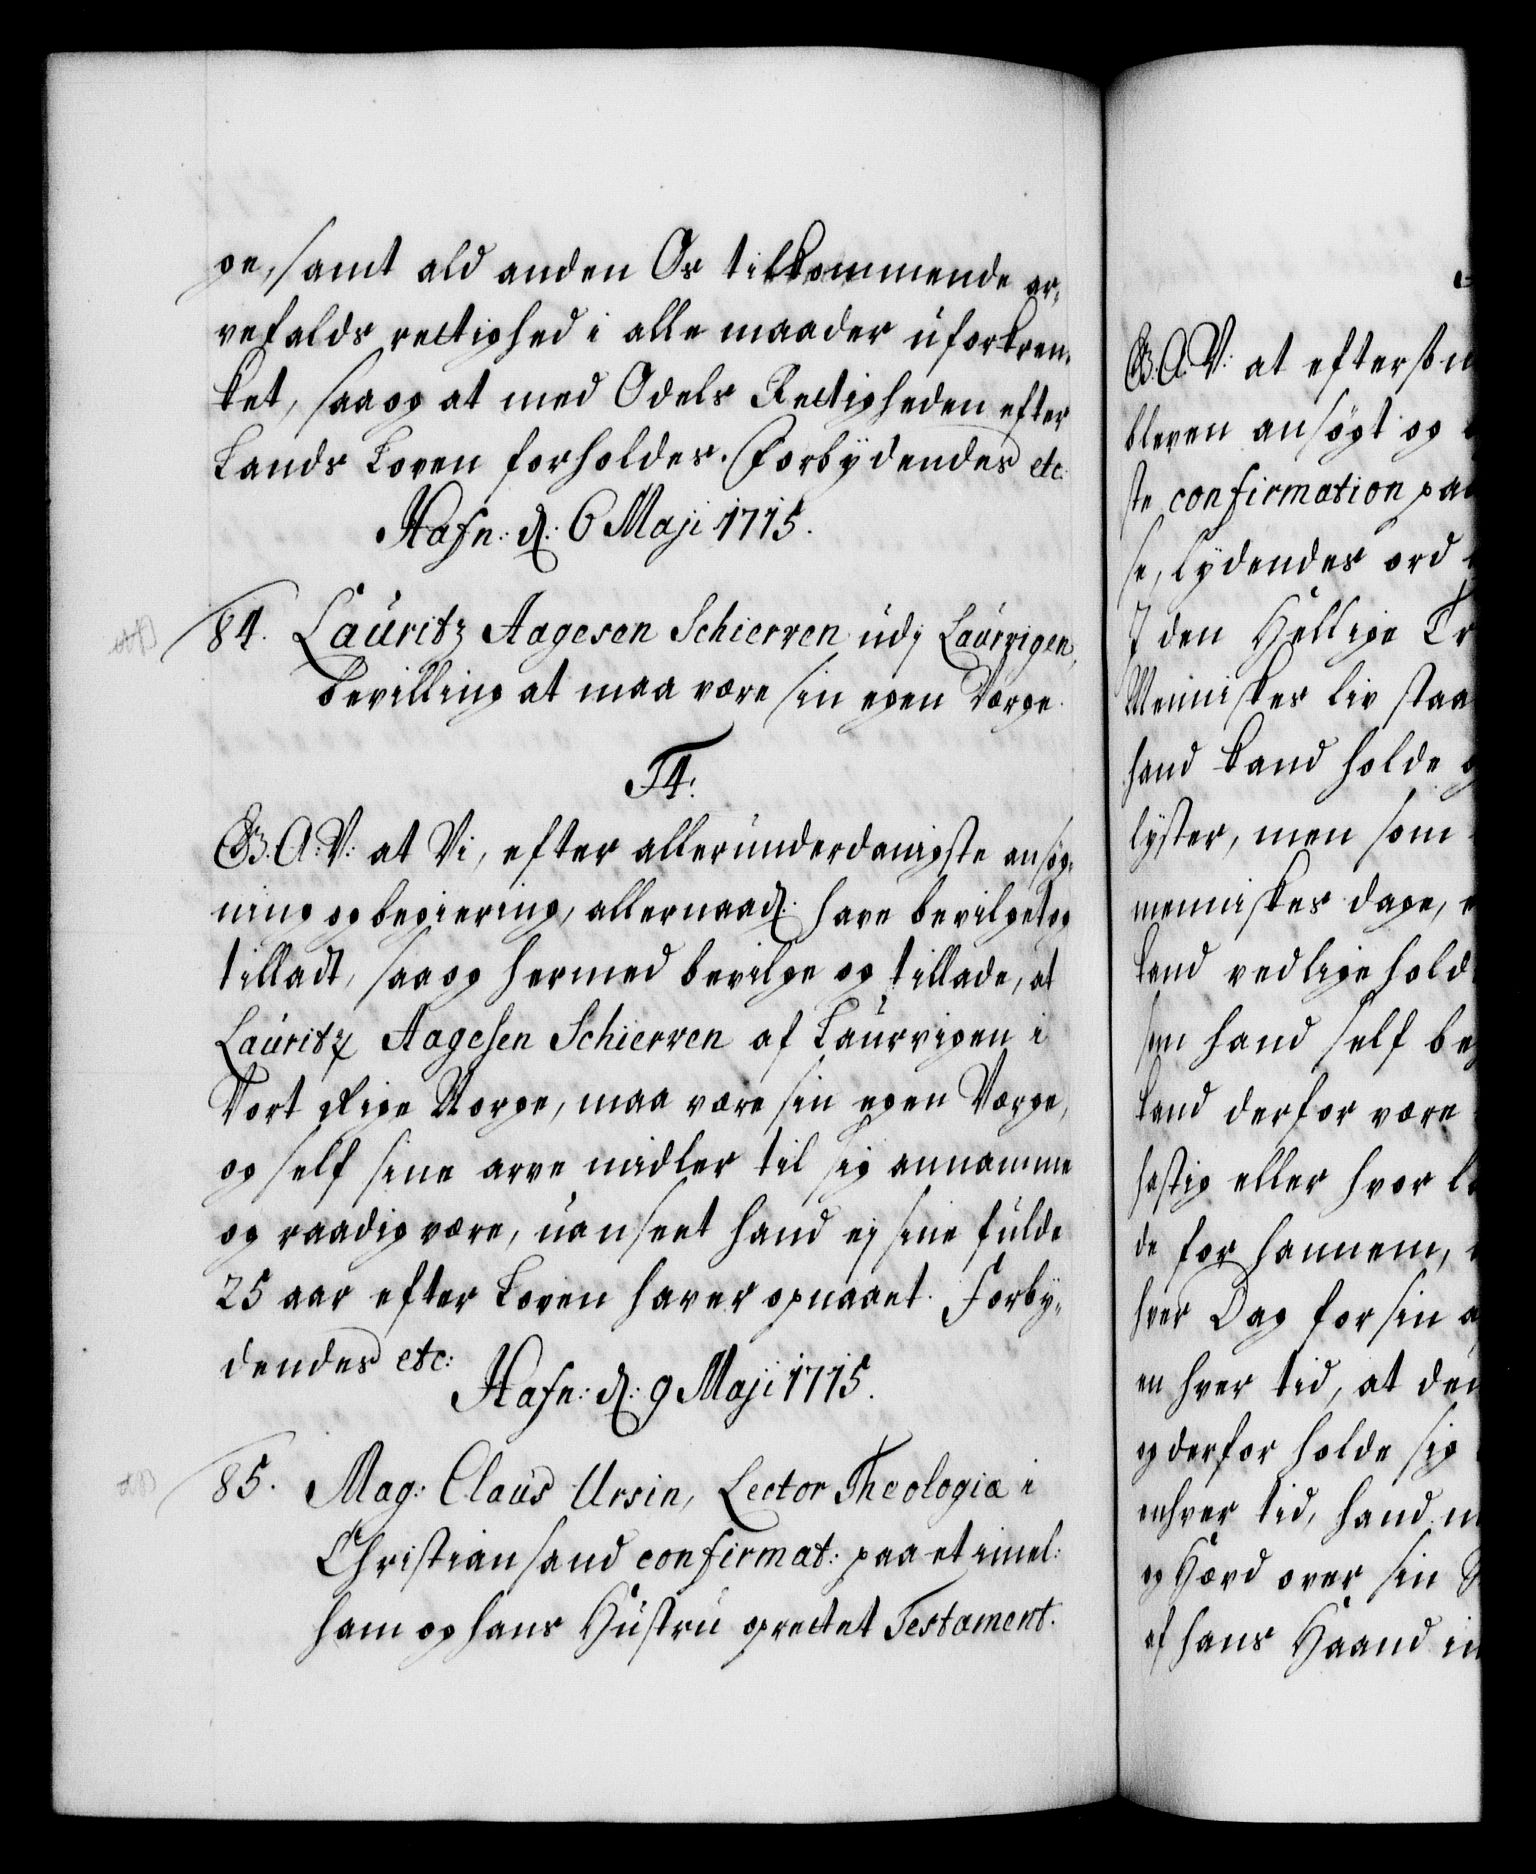 ge, samt ald anden Os tilkommende ar-
vefalds rectighed i alle maader uforkren-
ket, saa og at med Odels Rectigheden efter
Lands Loven forholdes. Forbydendes etc:
Hafn: d: 6 Maji 1715.
84. Lauritz Aagesen Schierven udj Laurvigen,
bevilling at maa være sin egen Værge.
F4:
G. A: V: at Vi, efter allerunderdanigste ansøg-
ning og begiering, allernaad: have bevilget og
tilladt, saa og hermed bevilge og tillade, at
Lauritz Aagesen Schierven af Laurvigen i
Vort Rige Norge, maa være sin egen Værge,
og self sine arve midler til sig annamme
og raadig være, uanseet hand ej sine fulde
25 aar efter Loven haver opnaaet. Forby-
dendes etc:
Hafn: d: 9 Maji 1715.
85. Mag: Claus Ursin, Lector Theologiæ i
Christiansand confirmat: paa et imel:
ham og hans Hustru oprettet Testament.
G. A. V: at eftersom
bleven ansøgt og
ste confirmation paa
se, lydendes ord
I den Hellige Tr
Menniskes liv staa
hand kand holde
lyster, men som
menniskes dage,
kand vedlige hold
som hand self be
kand derfor være
hastig eller hvor
de for hannem,
hver Dag for sin
en hver tid, at den
og derfor holde sig
enhver tid, hand
og Hærd over sin
af hans Haand